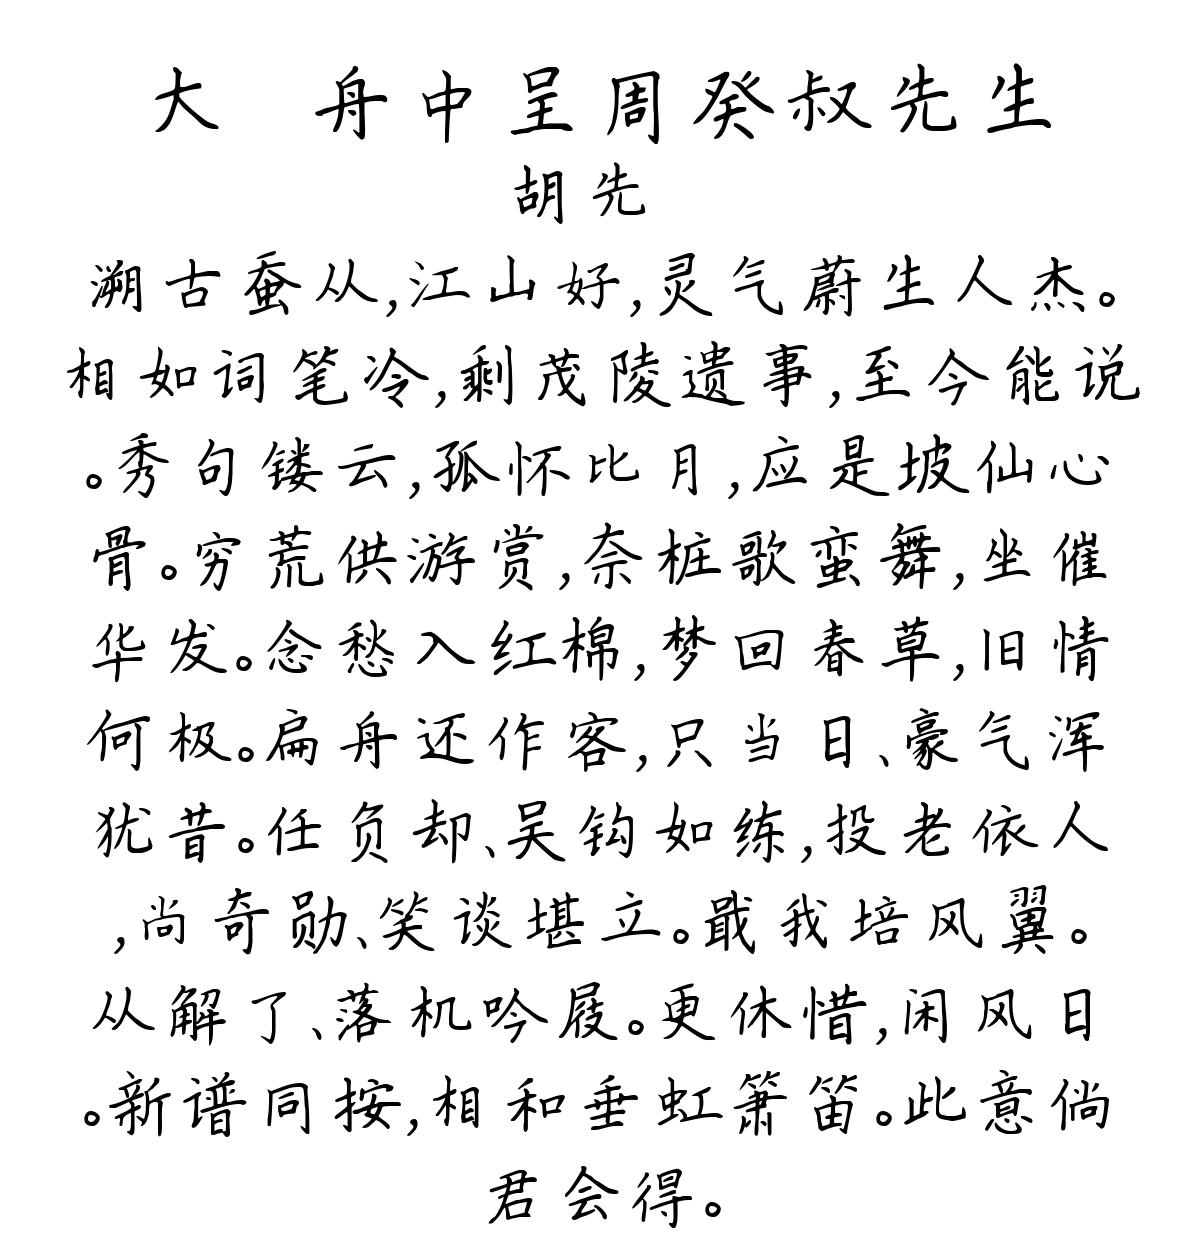 大　舟中呈周癸叔先生
胡先
溯古蚕从,江山好,灵气蔚生人杰。
相如词笔冷,剩茂陵遗事,至今能说
。秀句镂云,孤怀比月,应是坡仙心
骨。穷荒供游赏,奈桩歌蛮舞,坐催
华发。念愁入红棉,梦回春草,旧情
何极。扁舟还作客,只当日、豪气浑
犹昔。任负却、吴钩如练,投老依人
,尚奇勋、笑谈堪立。戢我培风翼。
从解了、落机吟屐。更休惜,闲风日
。新谱同按,相和垂虹箫笛。此意倘
君会得。